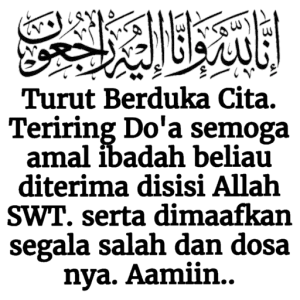 إنا لله وإنا إليه راجعون
Turut Berduka Cita.
Teriring Do'a semoga
amal ibadah beliau
diterima disisi Allah
SWT. serta dimaafkan
segala salah dan dosa
nya. Aamiin..